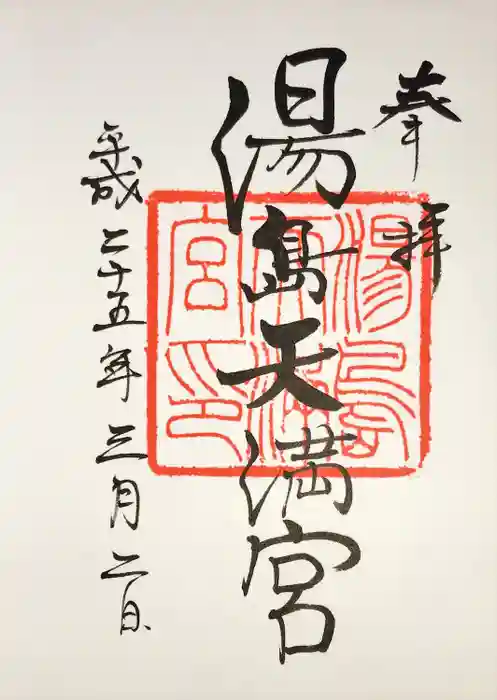 奉拝
湯島天満宮
湯島天満宮印
平成二十五年三月二日